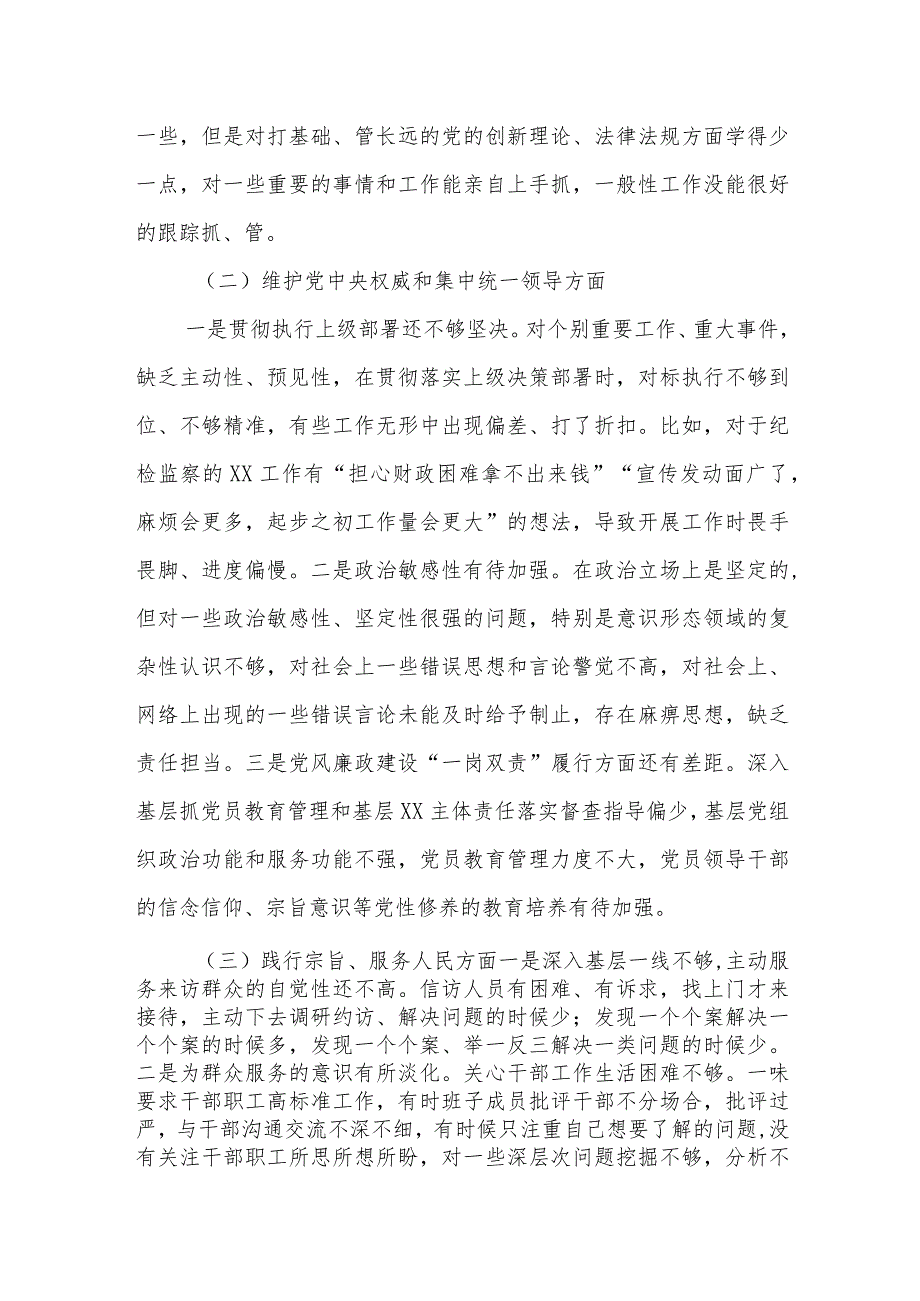 一些，但是对打基础、管长远的党的创新理论、法律法规方面学得少
一点，对一些重要的事情和工作能亲自上手抓，一般性工作没能很好
的跟踪抓、管。
（二）维护党中央权威和集中统一领导方面
一是贯彻执行上级部署还不够坚决。对个别重要工作、重大事件，
缺乏主动性、预见性，在贯彻落实上级决策部署时，对标执行不够到
位、不够精准，有些工作无形中出现偏差、打了折扣。比如，对于纪
检监察的XX工作有“担心财政困难拿不出来钱”“宣传发动面广了，
麻烦会更多，起步之初工作量会更大”的想法，导致开展工作时畏手
畏脚、进度偏慢。二是政治敏感性有待加强。在政治立场上是坚定的，
但对一些政治敏感性、坚定性很强的问题，特别是意识形态领域的复
杂性认识不够，对社会上一些错误思想和言论警觉不高，对社会上、
网络上出现的一些错误言论未能及时给予制止，存在麻痹思想，缺乏
责任担当。三是党风廉政建设“一岗双责”履行方面还有差距。深入
基层抓党员教育管理和基层XX主体责任落实督查指导偏少，基层党组
织政治功能和服务功能不强，党员教育管理力度不大，党员领导干部
的信念信仰、宗旨意识等党性修养的教育培养有待加强。
（三）践行宗旨、服务人民方面一是深入基层一线不够,主动服
务来访群众的自觉性还不高。信访人员有困难、有诉求，找上门才来
接待，主动下去调研约访、解决问题的时候少；发现一个个案解决一
个个案的时候多，发现一个个案、举一反三解决一类问题的时候少。
二是为群众服务的意识有所淡化。关心干部工作生活困难不够。一味
要求干部职工高标准工作，有时班子成员批评干部不分场合，批评过
严，与干部沟通交流不深不细，有时候只注重自己想要了解的问题,没
有关注干部职工所思所想所盼，对一些深层次问题挖掘不够，分析不